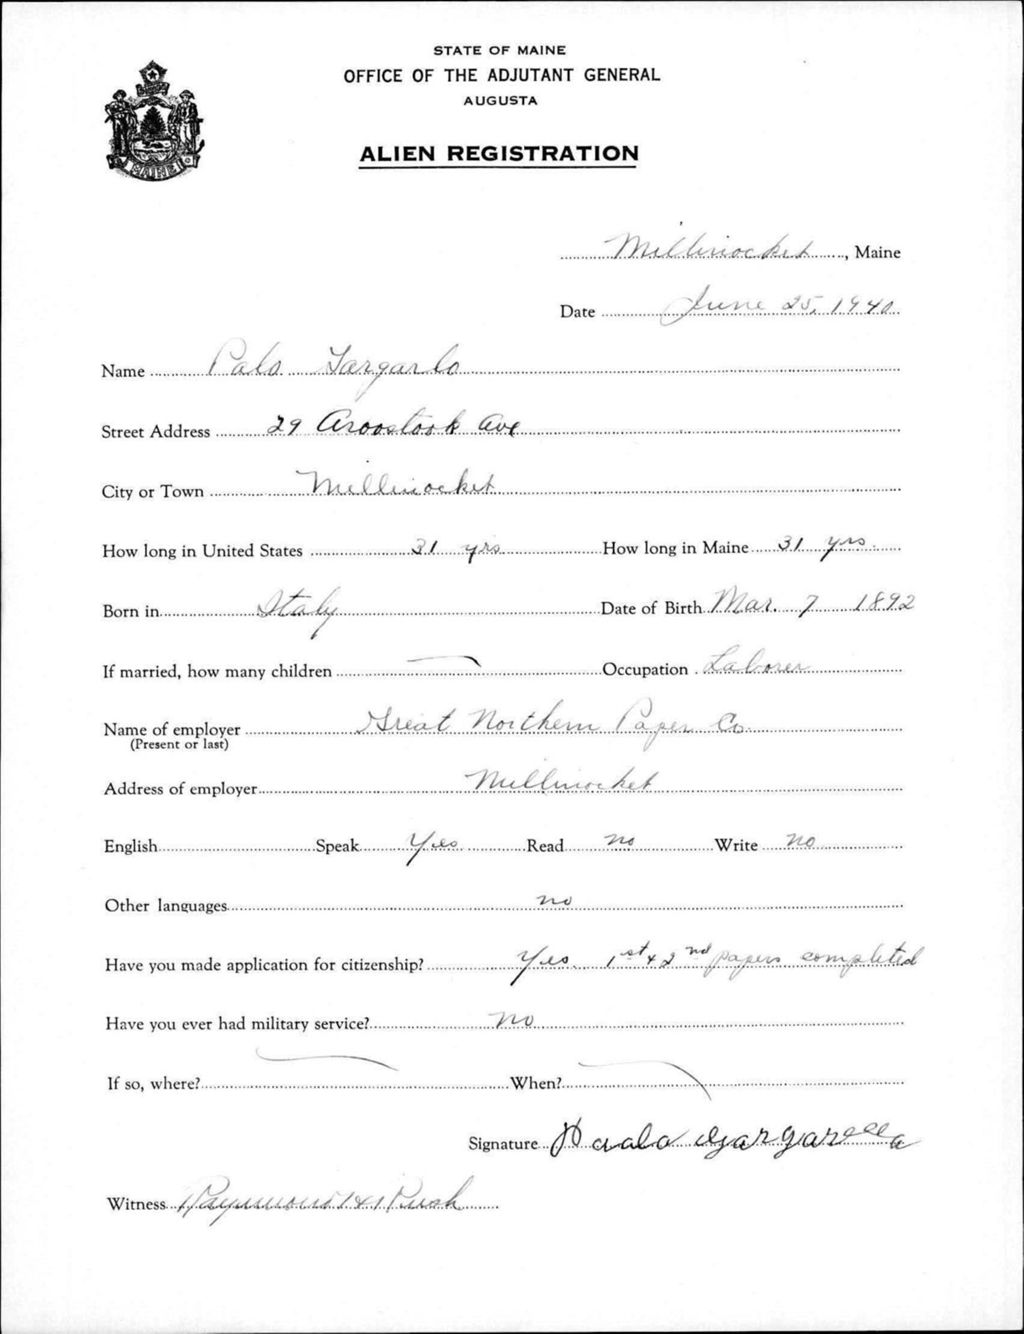 STATE OF MAINE
OFFICE OF THE ADJUTANT GENERAL
AUGUSTA
ALIEN REGISTRATION
MAINE
Millinocket, Maine
Date June 25, 1940
Name Palo Gargarlo
Street Address 29 Aroostook Ave
City or Town Millinocket
How long in United States 31 yrs How long in Maine 31 yrs.
Born in Italy Date of Birth Mar. 7 1892
If married, how many children — Occupation Laborer
Name of employer Great Northern Paper Co.
(Present or last)
Address of employer Millinocket
English Speak Yes Read no Write no
Other languages no
Have you made application for citizenship? Yes. 1st & 2nd papers completed
Have you ever had military service? no
If so, where? — When? —
Signature Paolo Gargarella
Witness Raymond Rush